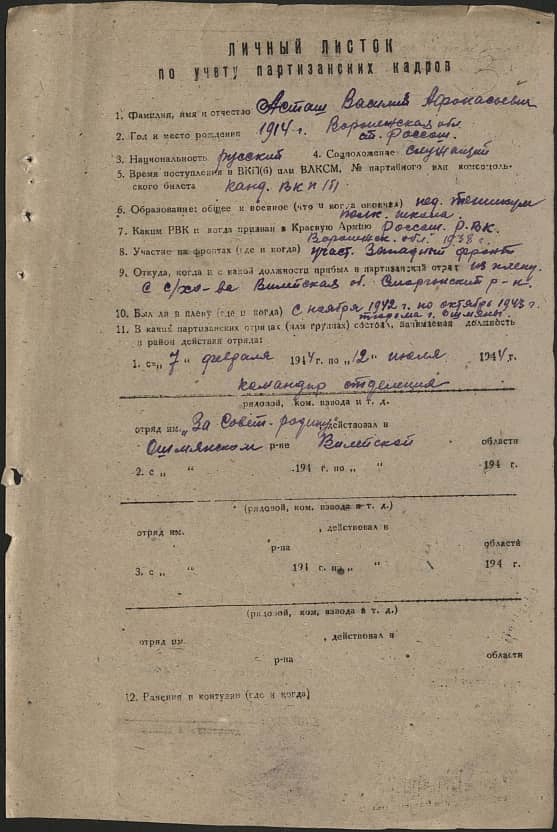 ЛИЧНЫЙ ЛИСТОК
по учету партизанских кадров
1. Фамилия, имя и отчество Асташ Василий Афонасьевич
2. Год и место рождения 1914 г. Воронежская обл
ст. Россош.
3. Национальность русский 4. Соцположение служащий
5. Время поступления в ВКП(б) или ВЛКСМ, № партийного или комсомоль-
ского билета канд. ВКП(б)
6. Образование: общее и военное (что и когда окончил) пед. техникум
полк. школа.
7. Каким РВК и когда призван в Красную Армию Россош. Р.В.К.
Воронежск. обл. 1938 г.
8. Участие на фронтах (где и когда) участ. Западный фронт
9. Откуда, когда и с какой должности прибыл в партизанский отряд из плену.
с с/хо-ва Вилейская об. Сморгонский р-н.
10. Был ли в плену (где и когда) с ноября 1942 г. по октябрь 1943 г.
тюрьма г. Ошмяны.
11. В каких партизанских отрядах (или группах) состоял, занимаемая должность
и район действия отряда:
1. с „ 7 “ февраля 1944 г. по „ 12 “ июля 1944 г.
командир отделения
рядовой, ком. взвода и т. д.
отряд им. „За Совет. родину“ действовал в
Ошмянском р-не Вилейской области
2. с „ “ 194 г. по „ “ 194 г.
(рядовой, ком. взвода и т. д.)
отряд им. , действовал в
р-на области
3. с „ “ 194 г. по „ “ 194 г.
(рядовой, ком, взвода и т. д.)
отряд им. , действовал в
р-на области
12. Ранения и контузии (где и когда)